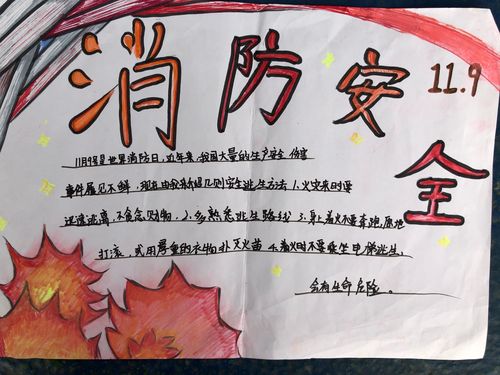 消防安全
11.9
11月9日是世界消防日,近年来,我国大量的生产安全伤害
事件屡见不鲜,现在由我来介绍几则安全逃生方法 1.火灾来时要
迅速逃离,不贪念财物,2.多熟悉逃生路线 3.身上着火不要奔跑,原地
打滚,或用厚重的衣物扑灭火苗 4.着火时不要乘坐电梯逃生,
会有生命危险。